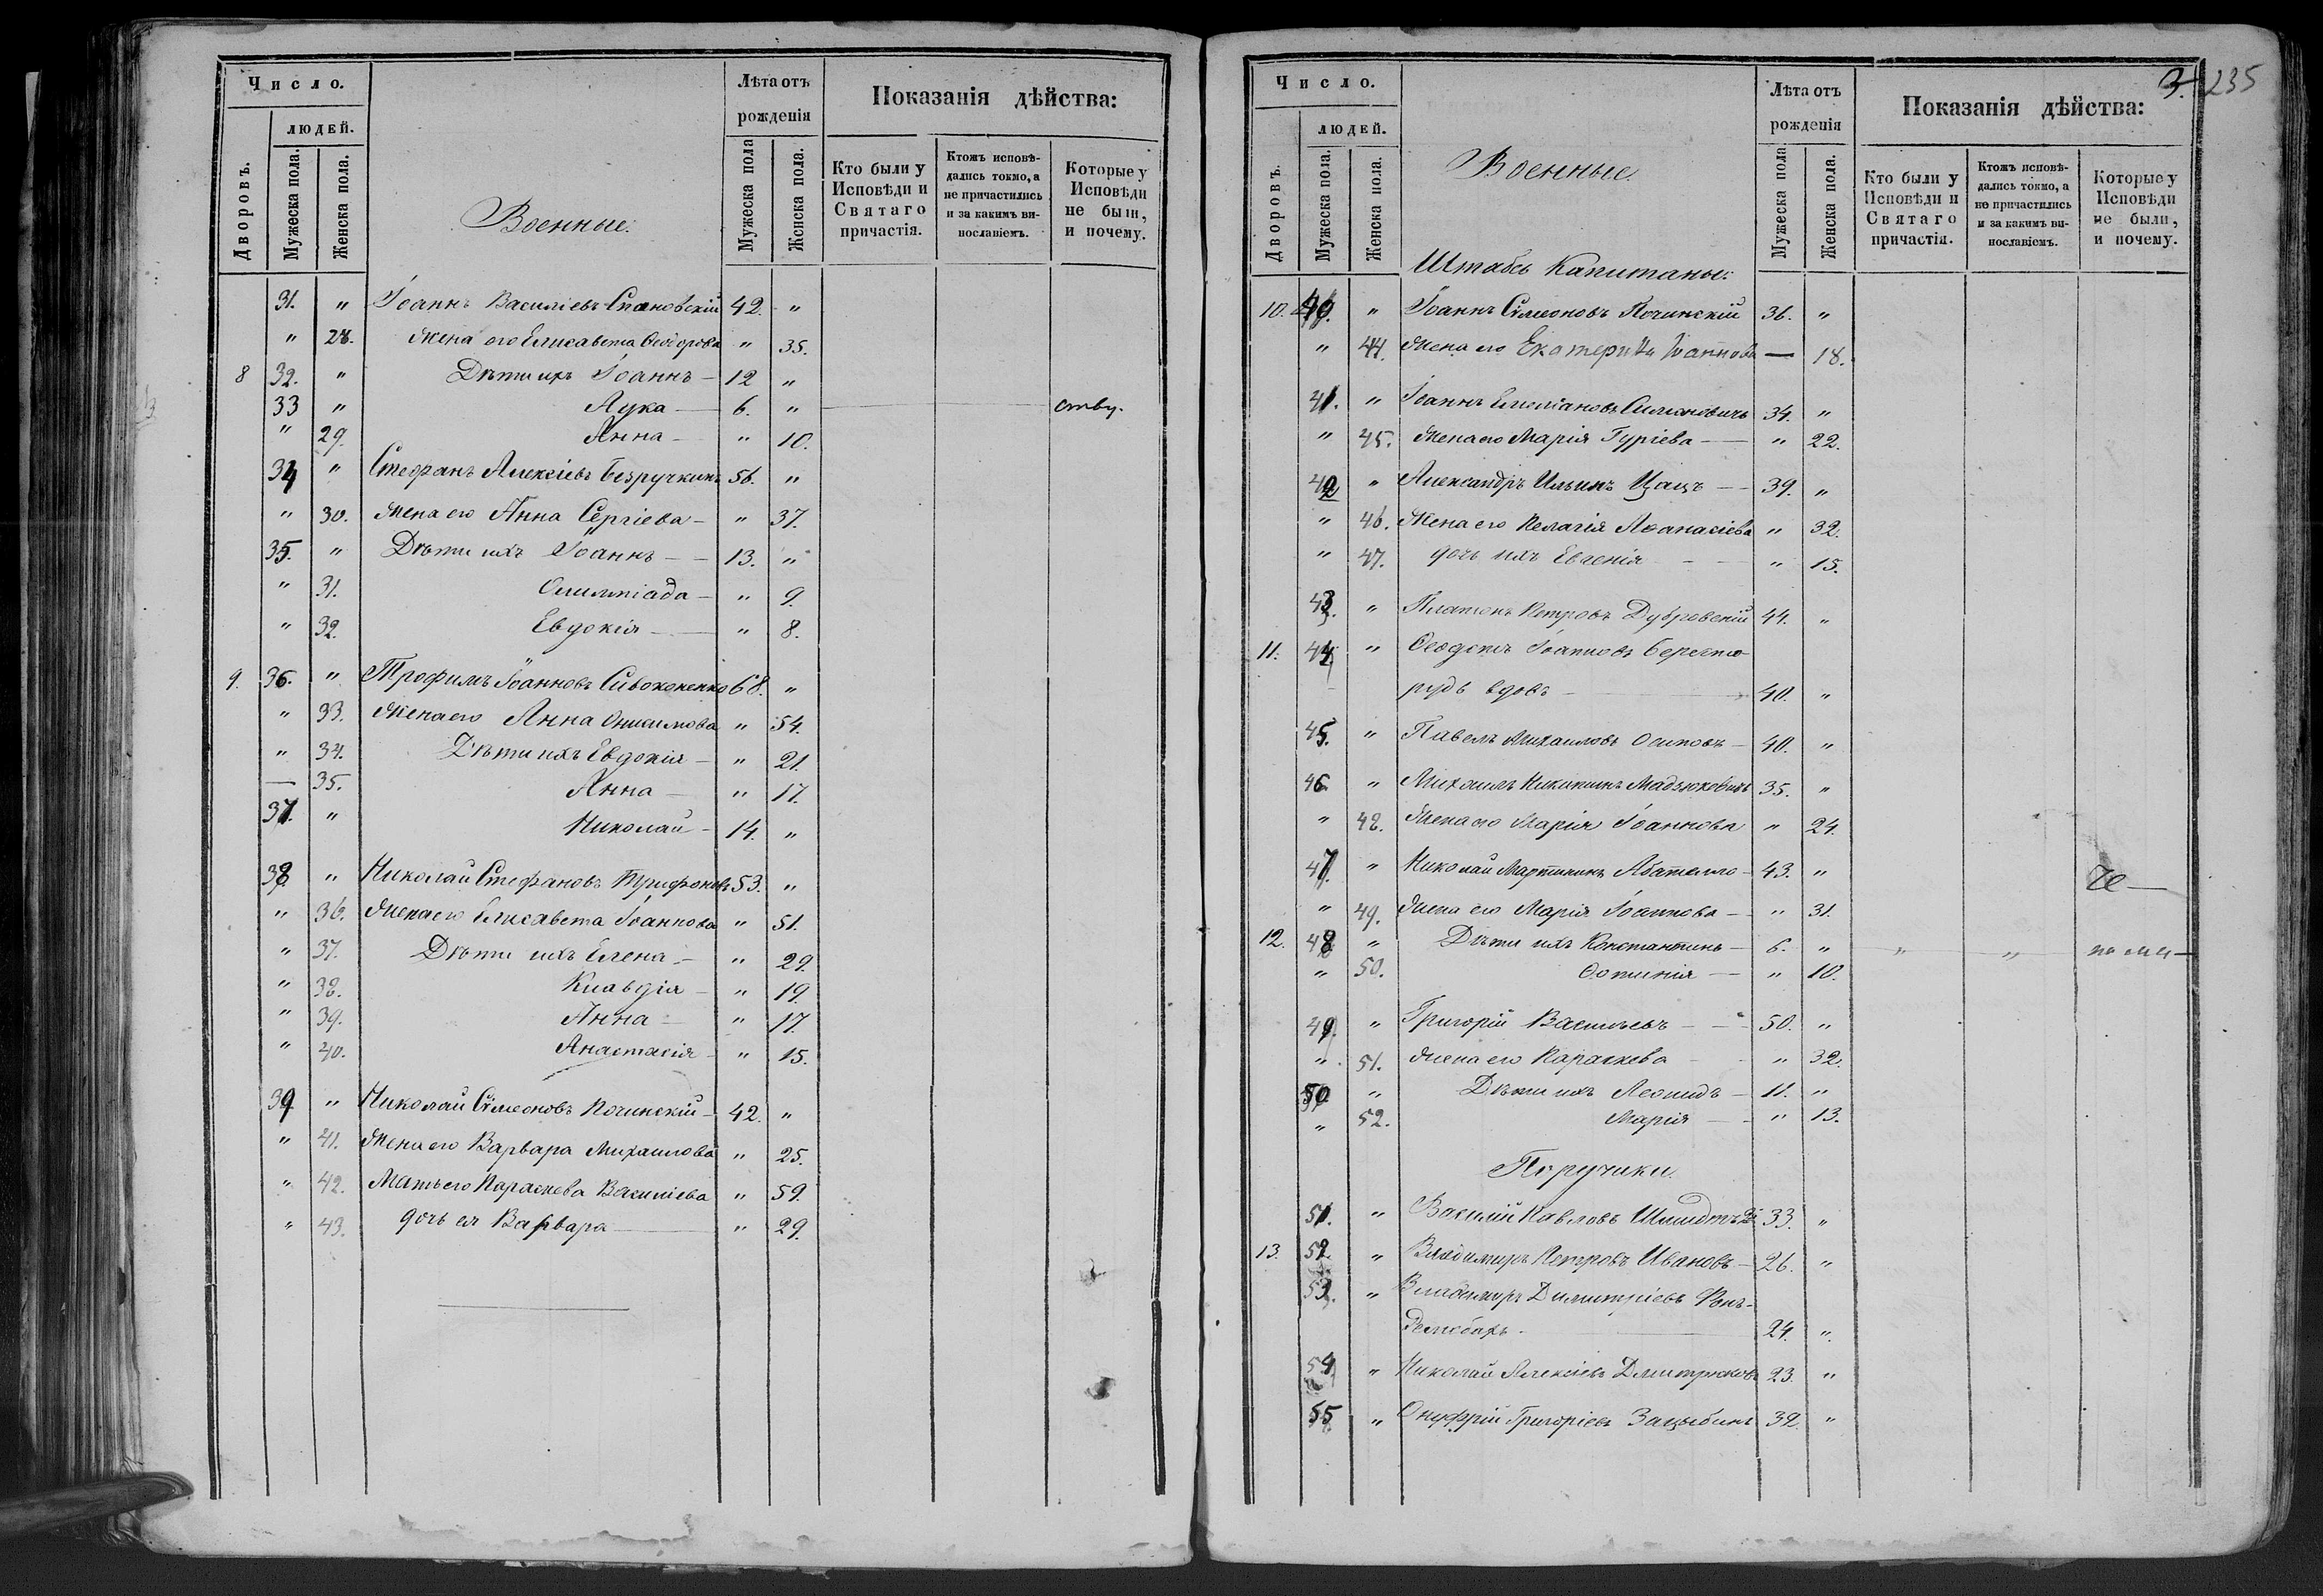 Число.
людей.
Дворовъ.
Мужеска пола.
Женска пола.
Военные.
Лѣта отъ
рожденія
Мужеска пола
Женска пола.
Показанія дѣйства:
Кто были у
Исповѣди и
Святаго
причастія.
Ктожъ исповѣ-
дались токмо, а
не причастились
и за какимъ ви-
нословіемъ.
Которые у
Исповѣди
не были,
и почему.
31. " Іоаннъ Василіевъ 42. "
" 28. Жена его Елисавета Ѳеодорова " 35.
8 32. " Дѣти ихъ Іоаннъ — 12 "
33 " Лука — 6. " ству.
" 29. Анна — " 10.
34 " Стефанъ Алексіевъ Безручкинъ 56. "
" 30. Жена его Анна Сергіева — " 37.
35. " Дѣти ихъ Іоаннъ — 13. "
" 31. Олимпіада — " 9.
" 32. Евдокія — " 8.
9. 36. " Трофимъ Іоанновъ Сивоконенко 68. "
" 33. Жена его Анна Онисимова " 54.
" 34. Дѣти ихъ Евдокія — " 21.
— 35. Анна — " 17.
37. " Николай — 14. "
38 " Николай Стефановъ Трифоновъ 53. "
" 36. Жена его Елисавета Іоаннова " 51.
" 37. Дѣти ихъ Елена — " 29.
" 38. Клавдія — " 19.
" 39. Анна — " 17.
" 40. Анастасія — " 15.
39 " Николай Сѵмеоновъ Починскій — 42. "
" 41. Жена его Варвара Михаилова " 25.
" 42. Мать его Параскева Василіева " 59.
" 43. дочь ея Варвара — " 29.
3. 235
Число.
людей.
Дворовъ.
Мужеска пола.
Женска пола.
Военные.
Лѣта отъ
рожденія
Мужеска пола
Женска пола.
Показанія дѣйства:
Кто были у
Исповѣди и
Святаго
причастія.
Ктожъ исповѣ-
дались токмо, а
не причастились
и за какимъ ви-
нословіемъ.
Которые у
Исповѣди
не были,
и почему.
Штабсъ Капитаны:
10. 40. " Іоаннъ Сѵмеоновъ Починскій 36. "
" 44. Жена его Екатерина Іоаннова — 18.
41. " Іоаннъ Емеліановъ Симановичъ 34. "
" 45. Жена его Марія Гуріева — " 22.
42 " Александръ Ильинъ — 39. "
" 46. Жена его Пелагія Аѳанасіева " 32.
" 47. дочь ихъ Евгенія — " 15.
43. " Платонъ Петровъ Дубровскій 44. "
11. 44 " Ѳеодотъ Іоанновъ
вдовъ — 40. "
45. " Павелъ Михаиловъ Осиповъ — 40. "
46 " Михаилъ Никитинъ 35. "
" 48. Жена его Марія Іоаннова " 24.
47. " Николай Мартининъ — 43. "
" 49. Жена его Марія Іоаннова — " 31.
12. 48 " Дѣти ихъ Константинъ — 6. " " " по мa—
" 50. Фотинія — " 10.
49. " Григорій Васильевъ — 50. "
" 51. Жена его Параскева " 32.
50 " Дѣти ихъ Леонидъ — 11. "
" 52. Марія — " 13.
Поручики.
51. " Василій Павловъ Шмидтъ 33. "
13. 52. " Владимиръ Петровъ Ивановъ — 26. "
53. " Владимиръ Димитріевъ Фонъ-
24. "
54 " Николай Алексіевъ Дмитрюковъ 23. "
55. " Онуфрій Григоріевъ Зацыбинъ 32. "